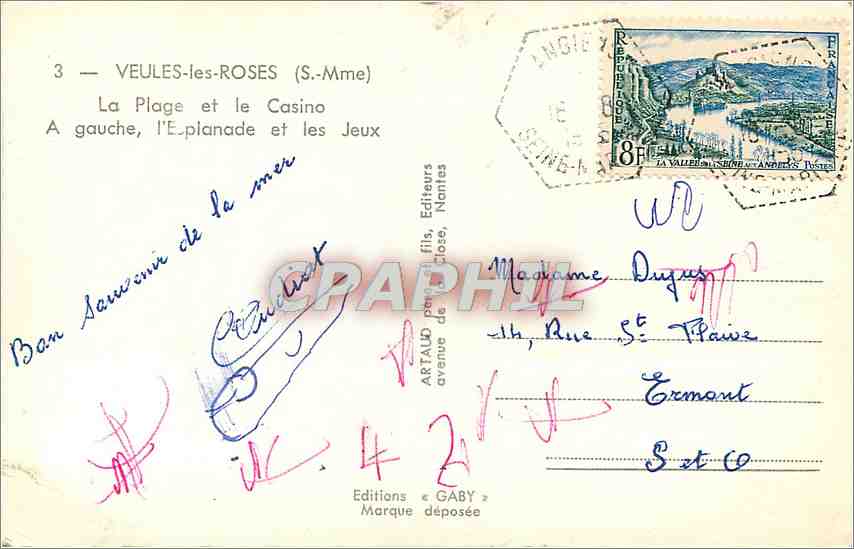 3 — VEULES-les-ROSES (S.-Mme)
La Plage et le Casino
A gauche, l'Esplanade et les Jeux
Bon Souvenir de la mer
ARTAUD père et fils, Editeurs
avenue de la Close, Nantes
CPARHIL
REPUBLIQUE
FRANÇAISE
8F
LA VALLEE DE LA SEINE AUX ANDELYS POSTES
SEINE-M
Madame Dupuis
14, Rue St Flaive
Ermont
S et O
4 2
Editions « GABY »
Marque déposée